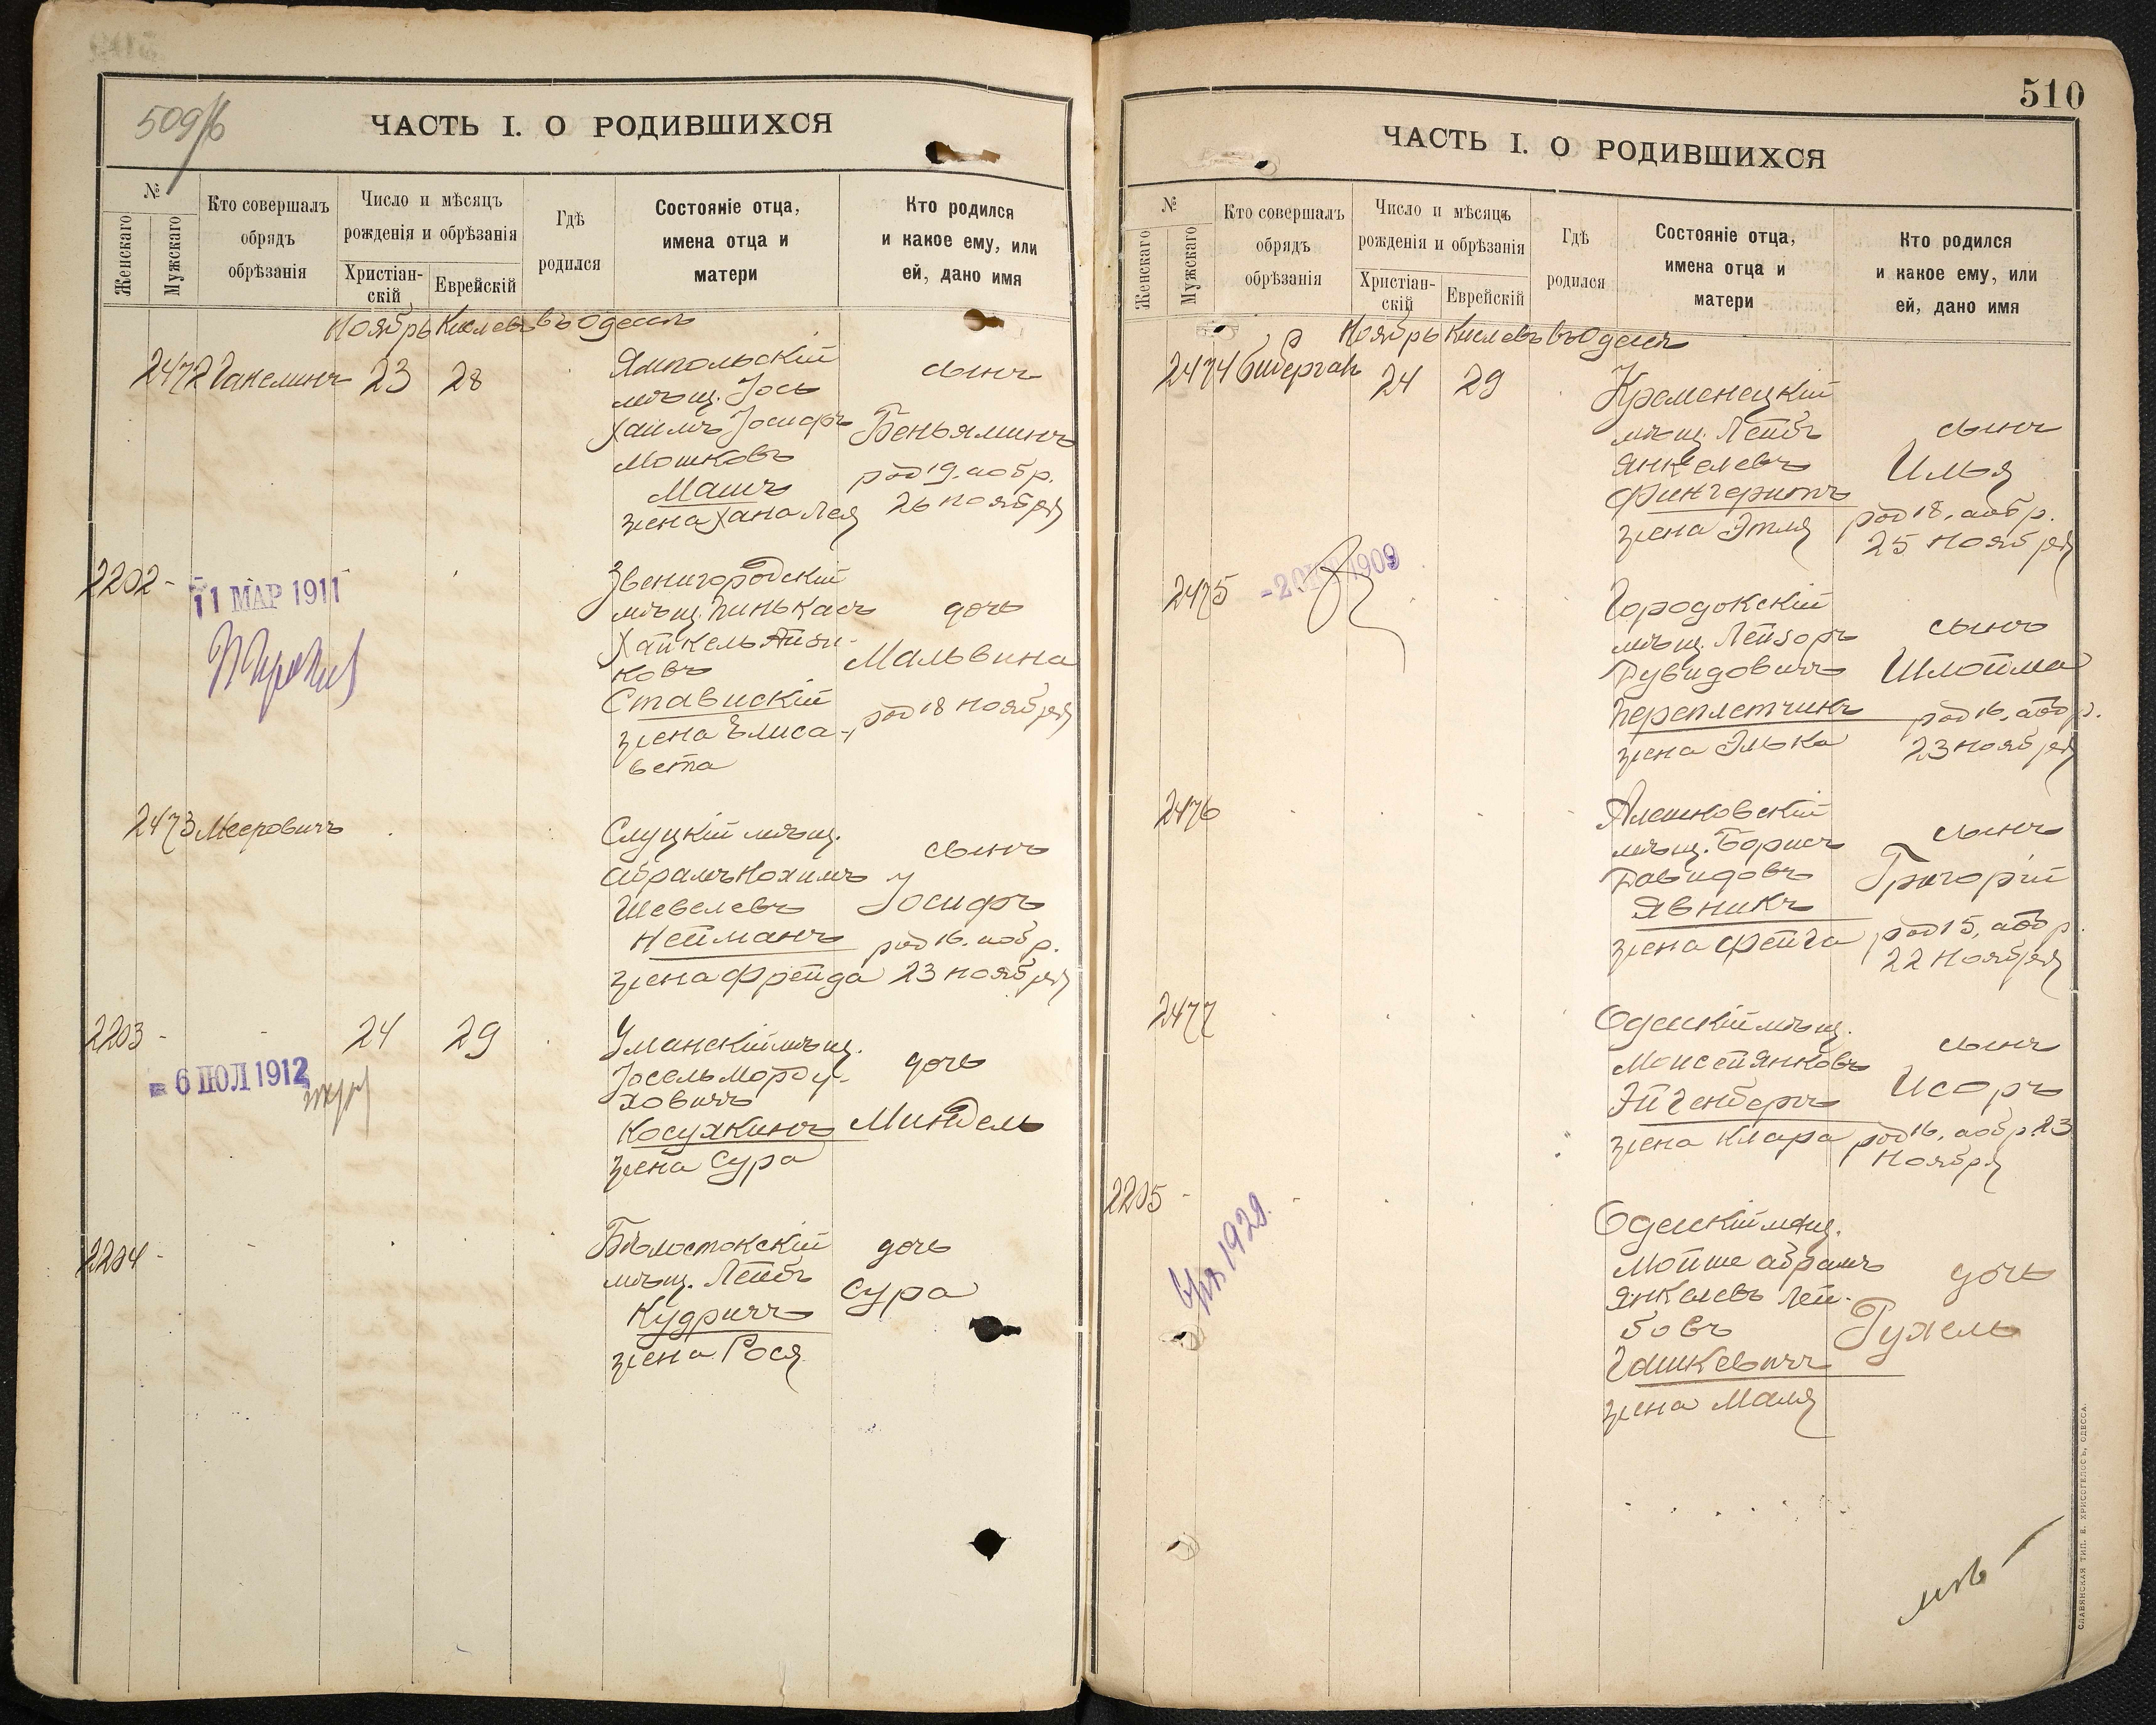 509/б
ЧАСТЬ I. О РОДИВШИХСЯ
№
Женскаго
Мужскаго
Кто совершалъ
обрядъ
обрѣзанія
Число и мѣсяцъ
рожденія и обрѣзанія
Христіан-
скій
Еврейскій
Гдѣ
родился
Состояніе отца,
имена отца и
матери
Кто родился
и какое ему, или
ей, дано имя
Ноябрь Кислевъ въ Одессѣ
2472 Гакелинъ 23 28
Ямпольскій
мѣщ. Іось
Хаимъ Іосифъ
Мошковъ
Машъ
жена Хана Лея
сынъ
Беньяминъ
род 19. аобр.
26 ноября
2202 -
11 МАР 1911
Звенигородскій
мѣщ. Пинькасъ
Хайкель Айзи-
ковъ
Ставискій
жена Елиса-
вета
дочь
Мальвина
род 18 ноября
2473 Мееровичъ
Слуцкій мѣщ.
Абрамъ Нохимъ
Шевелевъ
Нейманъ
жена Фрейда
сынъ
Іосифъ
род 16. аобр.
23 ноября
2203 - 24 29
- 6 ІЮЛ 1912
Уманскій мѣщ.
Іосель Морду-
ховичъ
Косухкинъ
жена Сура
дочь
Миндель
2204 -
Бѣлостокскій
мѣщ. Лейбъ
Кудричъ
жена Рося
дочь
Сура
510
ЧАСТЬ I. О РОДИВШИХСЯ
№
Женскаго
Мужскаго
Кто совершалъ
обрядъ
обрѣзанія
Число и мѣсяцъ
рожденія и обрѣзанія
Христіан-
скій
Еврейскій
Гдѣ
родился
Состояніе отца,
имена отца и
матери
Кто родился
и какое ему, или
ей, дано имя
Ноябрь Кислевъ въ Одессѣ
2474 Бибергалъ 24 29
Кременецкій
мѣщ. Лейбъ
Янкелевъ
Фингерутъ
жена Этля
сынъ
Илья
род 18. аобр.
25 ноября
2475
1909
Городокскій
мѣщ. Лейзоръ
Дувидовичъ
Переплетчикъ
жена Элька
сынъ
Шлойма
род 16. аобр.
23 ноября
2476
Алешковскій
мѣщ. Борисъ
Давидовъ
Явникъ
жена Фейга
сынъ
Григорій
род 15, аобр.
22 ноября
2477
Одесскій мѣщ.
Моисей Янковъ
Эйгенбергъ
жена Клара
сынъ
Исоръ
род 16. аобр. 23
ноября
2205 -
1929.
Одесскій мѣщ.
Мойше Абрамъ
Янкелевъ Лей-
бовъ
Гашкевичъ
жена Маля
дочь
Рухель
СЛАВЯНСКАЯ ТИП. Е. ХРИСОГЕЛОСЪ, ОДЕССА.